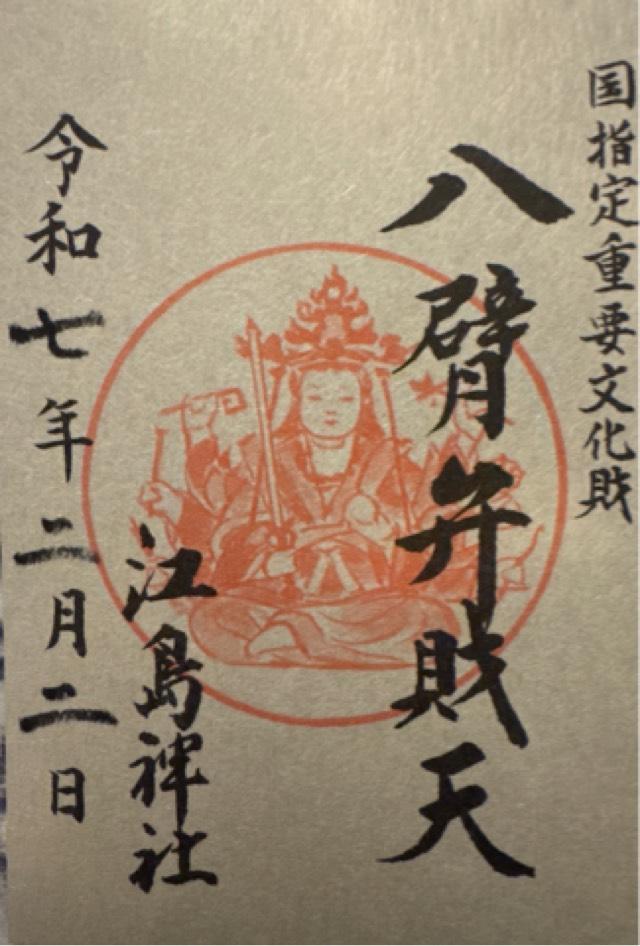 国指定重要文化財
八臂弁財天
江島神社
令和七年二月二日